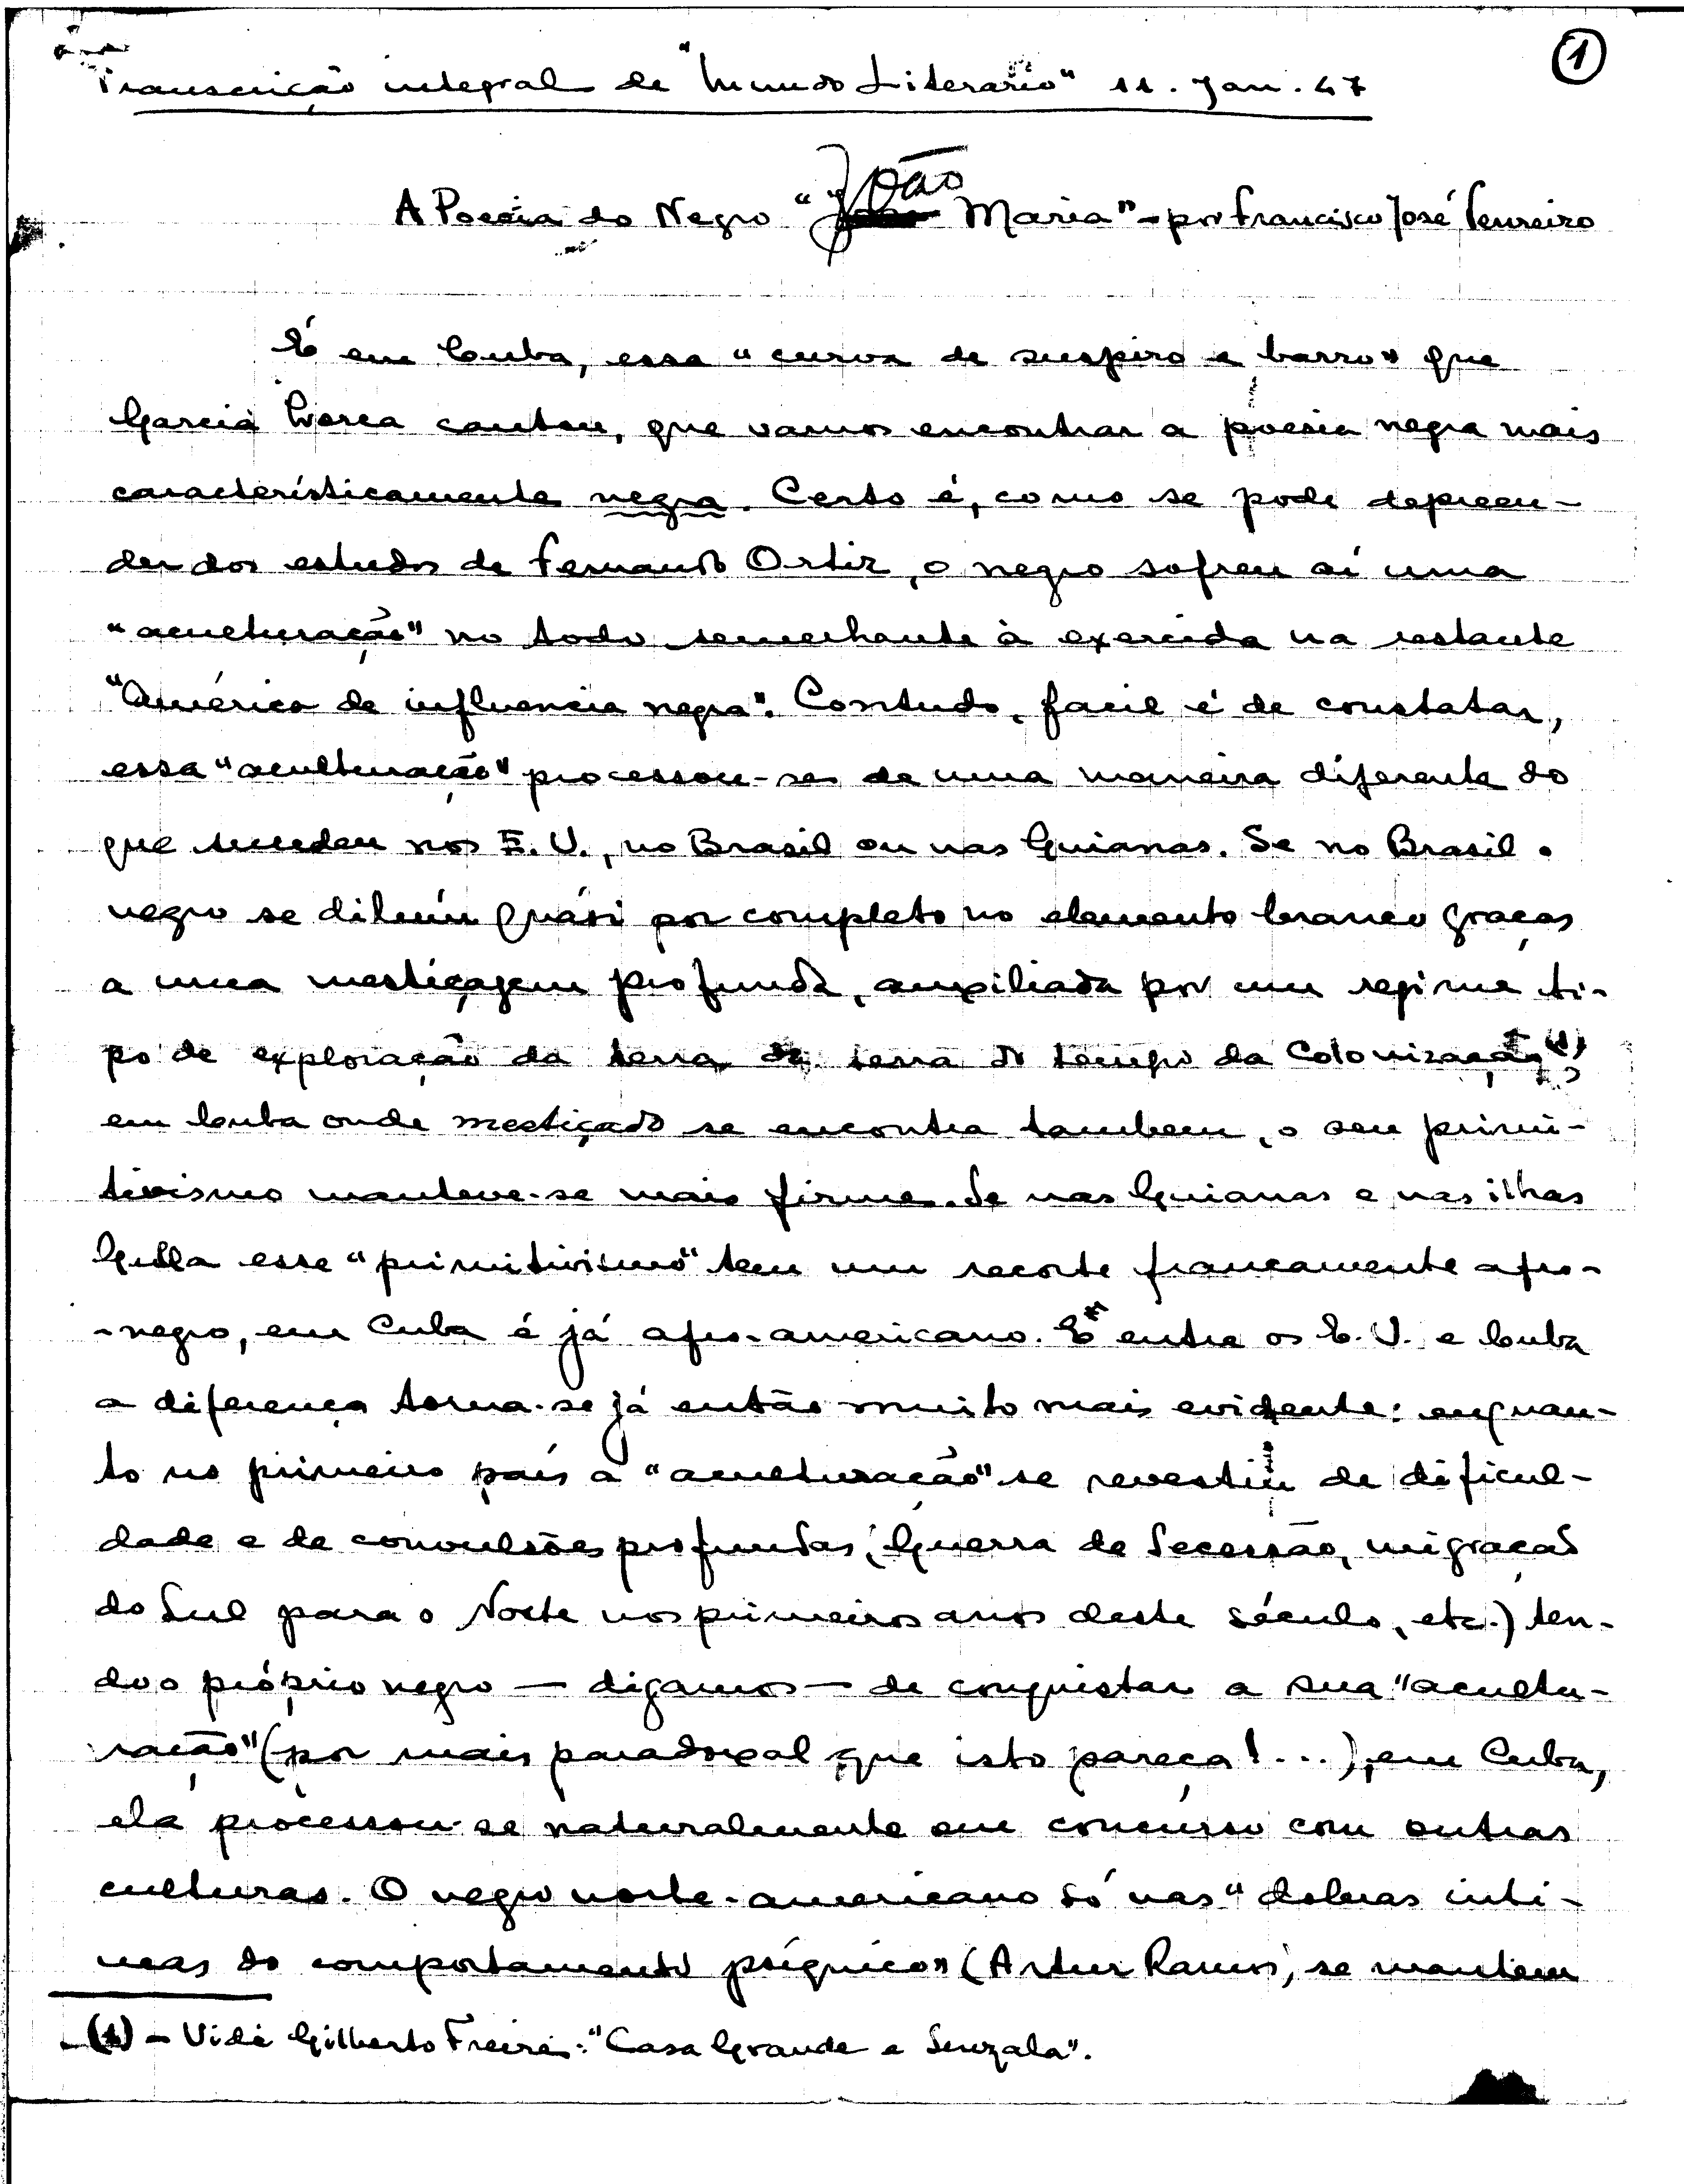 ①
Transcrição integral de "Mundo Literário" 11. Jan. 47
A Poesia do Negro "João Maria" - por Francisco José Tenreiro
É em Couba, essa "curva de suspiro e barro" que
Garcia Lorca cantou, que vamos encontrar a poesia negra mais
característicamente negra. Certo é, como se pode depreen-
der dos estudos de Fernando Ortiz, o negro sofreu aí uma
"aculturação" no todo semelhante à exercida na restante
"América de influencia negra". Contudo, facil é de constatar,
essa "aculturação" processou-se de uma maneira diferente do
que sucedeu nos E. U., no Brasil ou nas Guianas. Se no Brasil o
negro se diluíu quási por completo no elemento branco graças
a uma mestiçagem profunda, auxiliada por um regime ti-
po de exploração da terra da terra do tempo da Colonização (1),
em Couba onde mestiçado se encontra tambem, o seu primi-
tivismo manteve-se mais firme. Se nas Guianas e nas ilhas
Gulla esse "primitivismo" tem um recorte francamente afro-
-negro, em Cuba é já afro-americano. E entre os E. U. e Couba
a diferença torna-se já então muito mais evidente: enquan-
to no primeiro país a "aculturação" se revestiu de dificul-
dade e de convulsões profundas, (Guerra de Secessão, migração
do Sul para o Norte nos primeiros anos deste século, etc.) ten-
do o próprio negro — digamos — de conquistar a sua "acultu-
ração" (por mais paradoxal que isto pareça!...), em Cuba,
ela processou-se naturalmente em concurso com outras
culturas. O negro norte-americano só nas "dobras inti-
mas do comportamento psíquico" (Artur Ramos), se mantem
(1) - Vidé Gilberto Freire: "Casa Grande e Senzala".